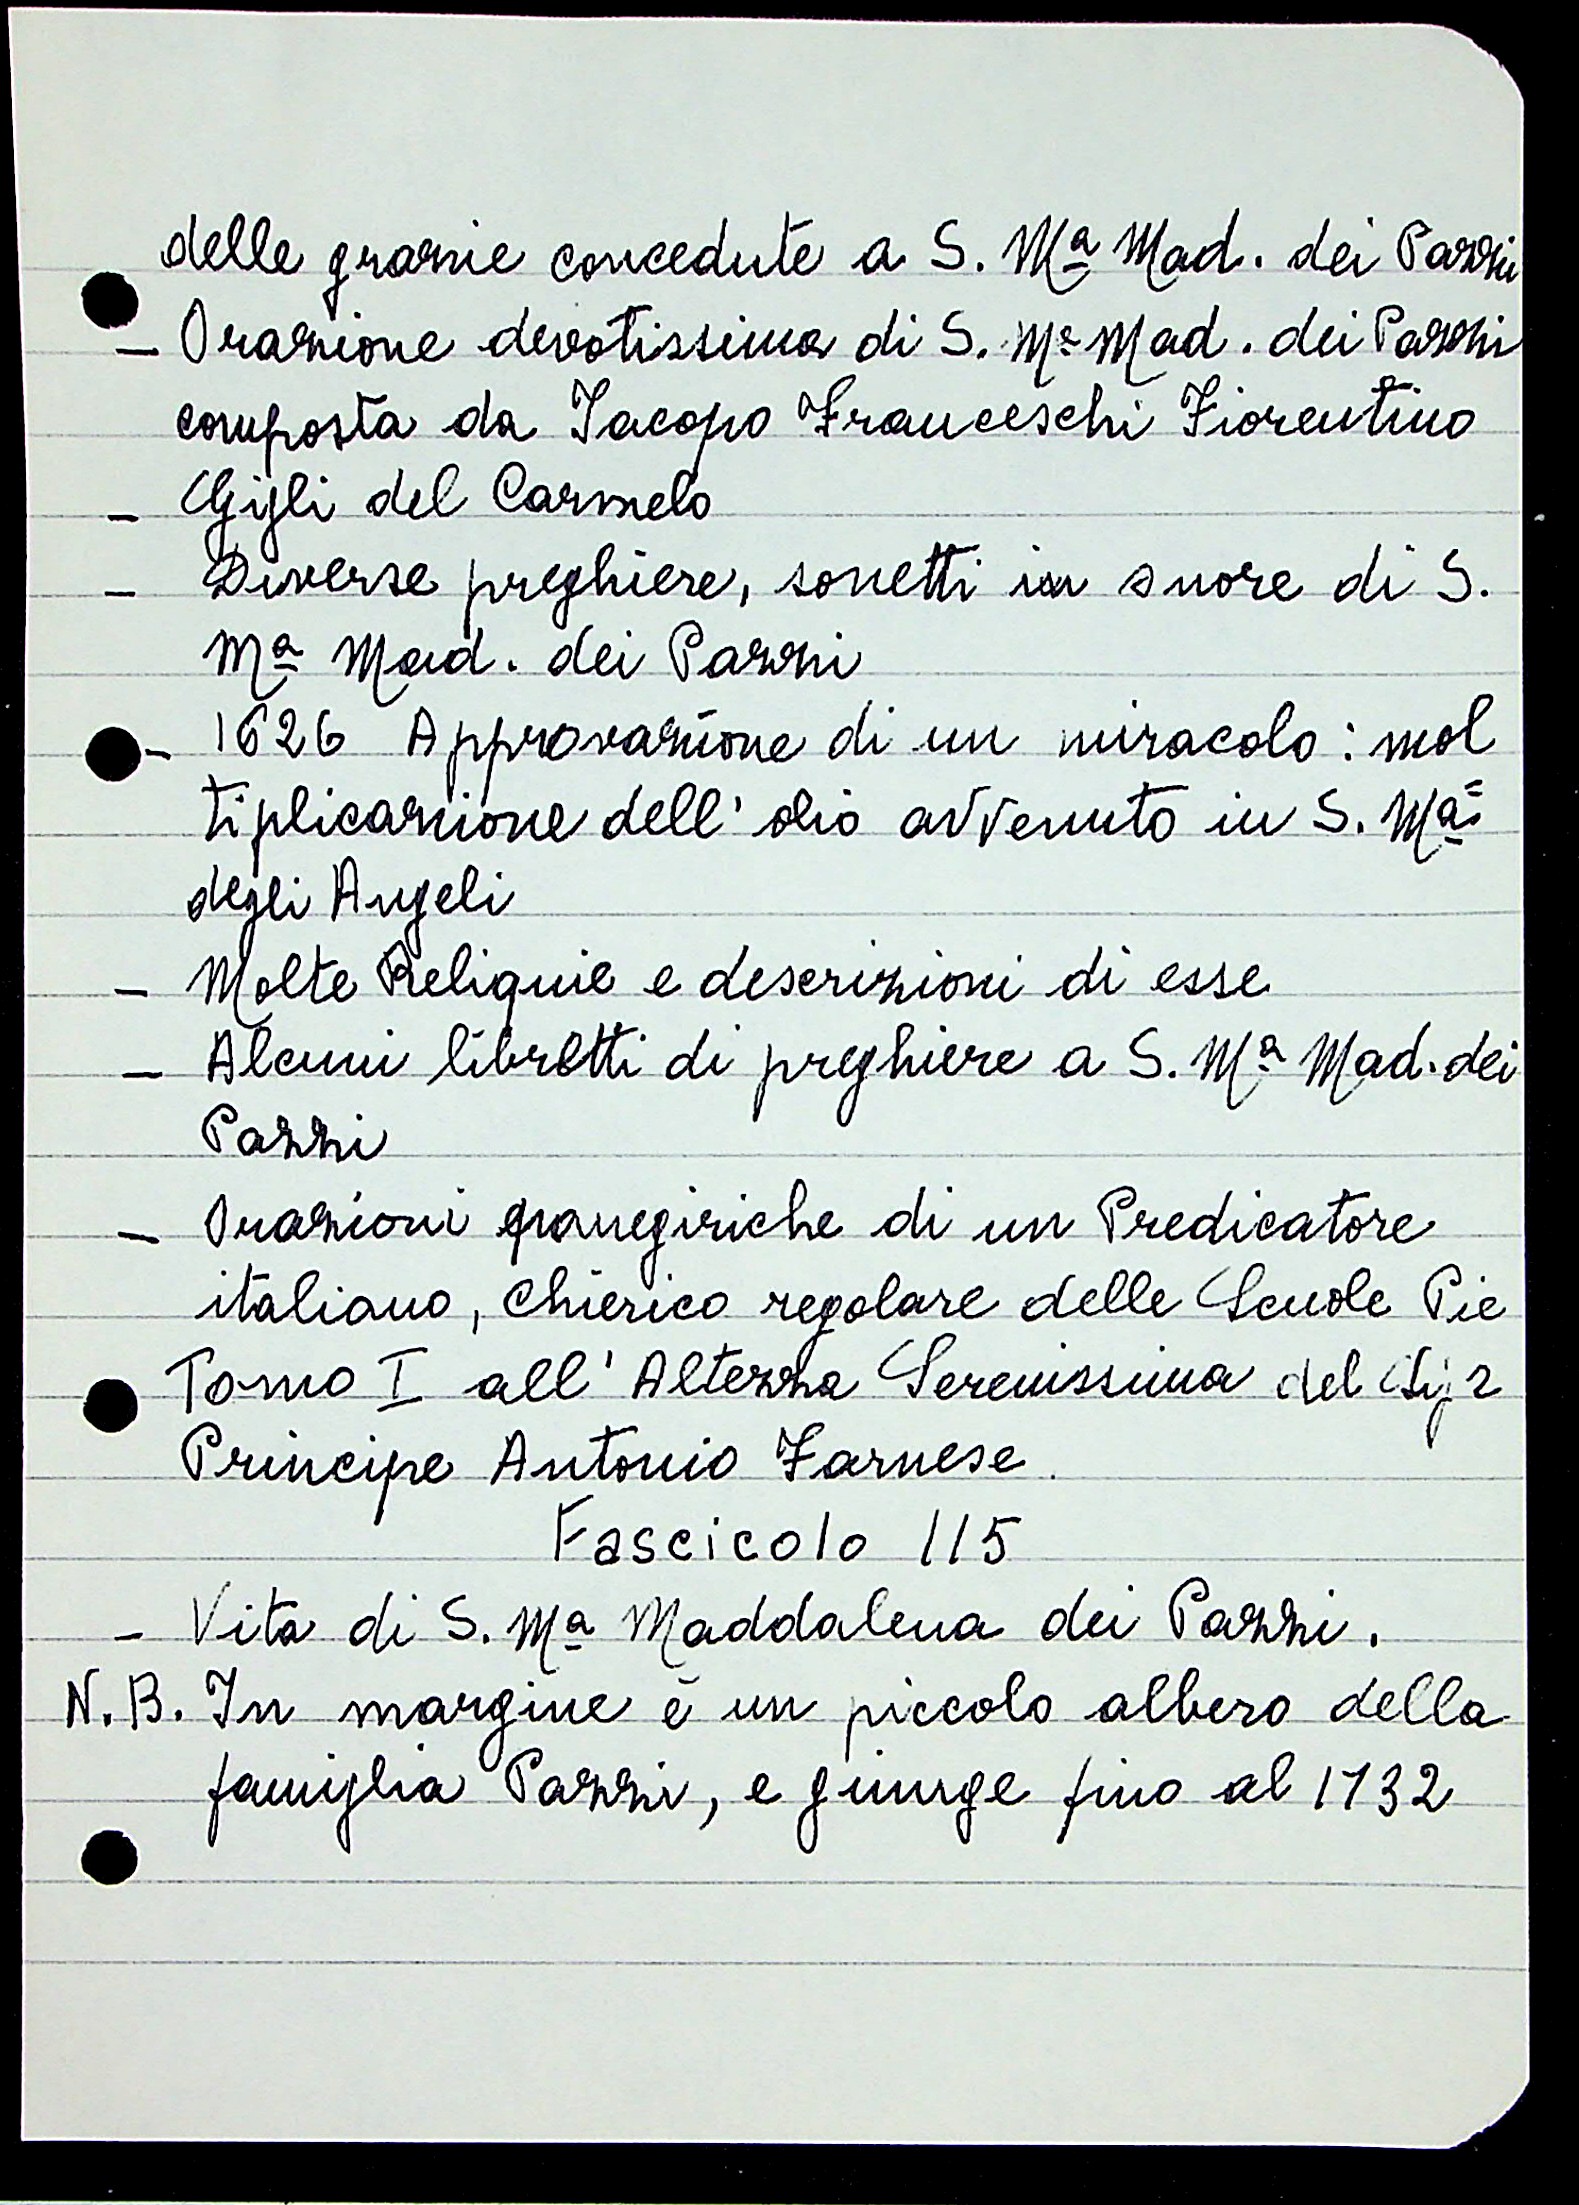 delle grazie concedute a S. Mª Mad. dei Pazzi
– Orazione devotissima di S. Mª Mad. dei Pazzi
composta da Iacopo Franceschi Fiorentino
– Gigli del Carmelo
– Diverse preghiere, sonetti in onore di S.
Mª Mad. dei Pazzi
– 1626 Approvazione di un miracolo: mol
tiplicazione dell'olio avvenuto in S. Mª
degli Angeli
– Molte Reliquie e descrizioni di esse
– Alcuni libretti di preghiere a S. Mª Mad. dei
Pazzi
– Orazioni panegiriche di un Predicatore
italiano, Chierico regolare delle Scuole Pie
Tomo I all'Altezza Serenissima del Sig r
Principe Antonio Farnese.
Fascicolo 115
– Vita di S. Mª Maddalena dei Pazzi.
N.B. In margine è un piccolo albero della
famiglia Pazzi, e giunge fino al 1732